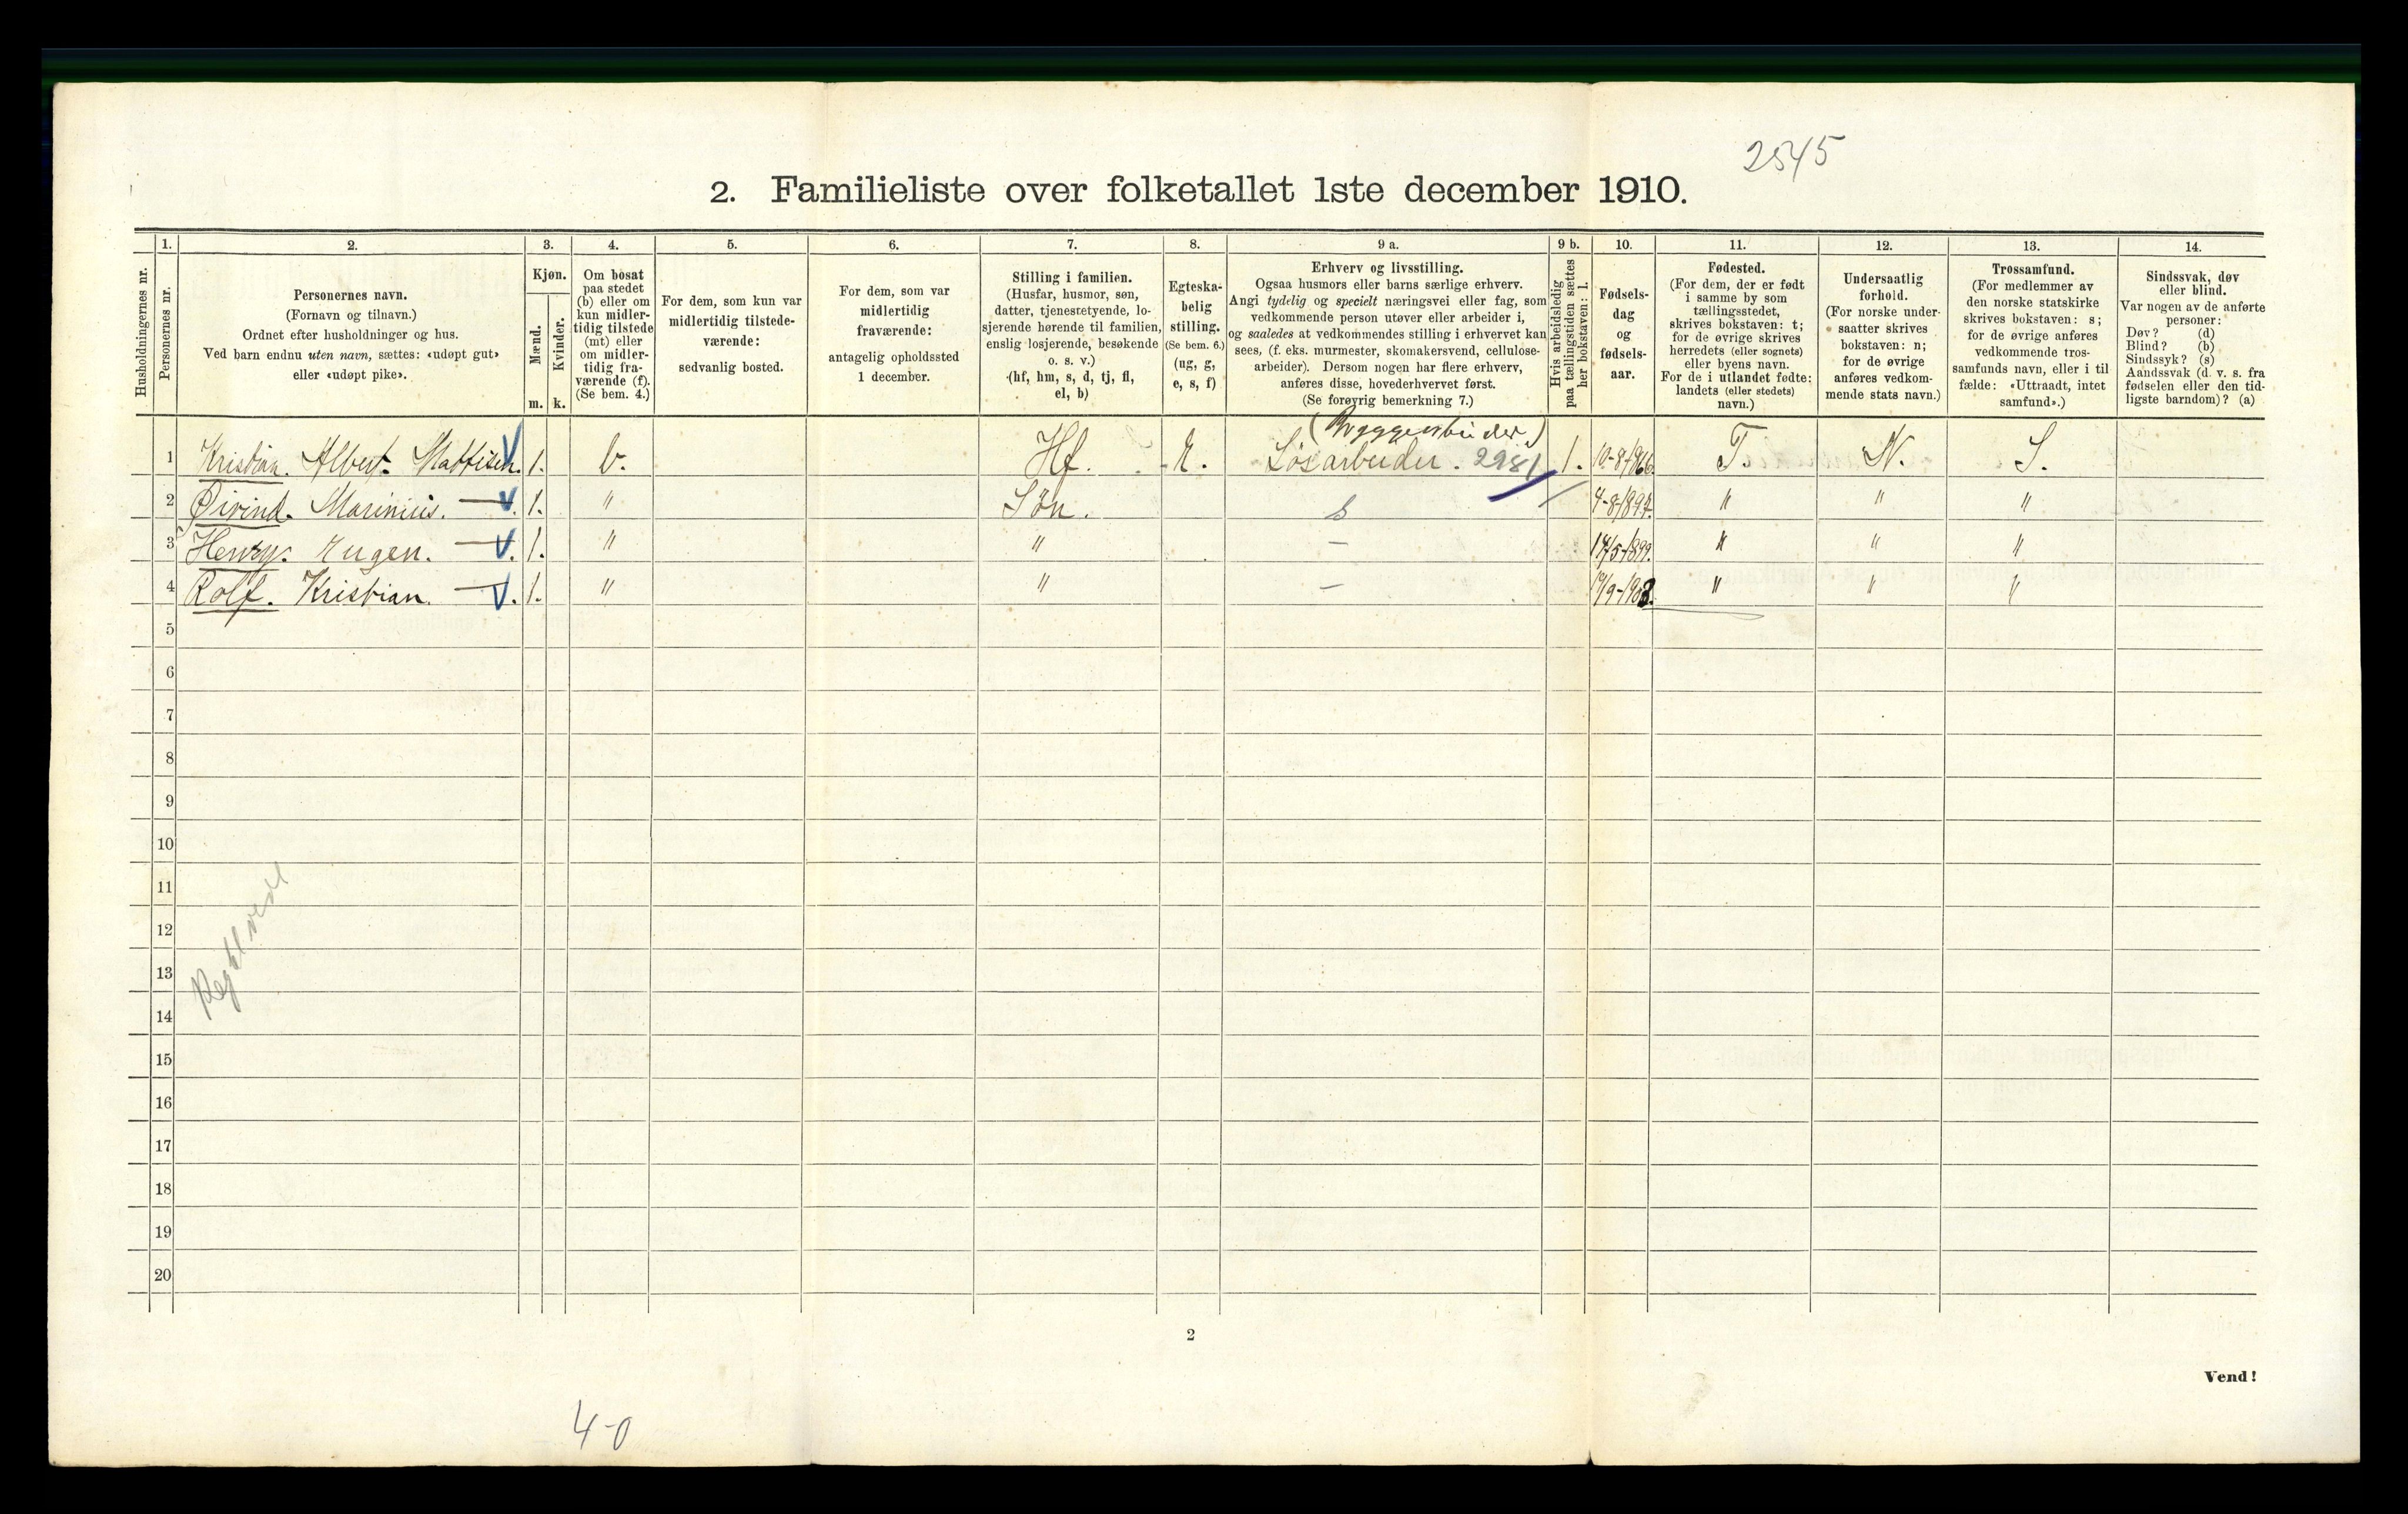 2545
2. Familieliste over folketallet 1ste december 1910.
1. 2. 3. 4. 5. 6. 7. 8. 9 a. 9 b. 10. 11. 12. 13. 14.
Husholdningernes nr.
Personernes nr.
Personernes navn.
(Fornavn og tilnavn.)
Ordnet efter husholdninger og hus.
Ved barn endnu uten navn, sættes: «udøpt gut»
eller «udøpt pike».
Kjøn.
Mænd.
Kvinder.
m. k.
Om bosat
paa stedet
(b) eller om
kun midler-
tidig tilstede
(mt) eller
om midler-
tidig fra-
værende (f).
(Se bem. 4.)
For dem, som kun var
midlertidig tilstede-
værende:
sedvanlig bosted.
For dem, som var
midlertidig
fraværende:
antagelig opholdssted
1 december.
Stilling i familien.
(Husfar, husmor, søn,
datter, tjenestetyende, lo-
sjerende hørende til familien,
enslig losjerende, besøkende
o. s. v.)
(hf, hm, s, d, tj, fl,
el, b)
Egteska-
belig
stilling.
(Se bem. 6.)
(ug, g,
e, s, f)
Erhverv og livsstilling.
Ogsaa husmors eller barns særlige erhverv.
Angi tydelig og specielt næringsvei eller fag, som
vedkommende person utøver eller arbeider i,
og saaledes at vedkommendes stilling i erhvervet kan
sees, (f. eks. murmester, skomakersvend, cellulose-
arbeider). Dersom nogen har flere erhverv,
anføres disse, hovederhvervet først.
(Se forøvrig bemerkning 7.)
Hvis arbeidsledig
paa tællingstiden sættes
her bokstaven: l.
Fødsels-
dag
og
fødsels-
aar.
Fødested.
(For dem, der er født
i samme by som
tællingsstedet,
skrives bokstaven: t;
for de øvrige skrives
herredets (eller sognets)
eller byens navn.
For de i utlandet fødte:
landets (eller stedets)
navn.)
Undersaatlig
forhold.
(For norske under-
saatter skrives
bokstaven: n;
for de øvrige
anføres vedkom-
mende stats navn.)
Trossamfund.
(For medlemmer av
den norske statskirke
skrives bokstaven: s;
for de øvrige anføres
vedkommende tros-
samfunds navn, eller i til
fælde: «Uttraadt, intet
samfund».)
Sindssvak, døv
eller blind.
Var nogen av de anførte
personer:
Døv? (d)
Blind? (b)
Sindssyk? (s)
Aandssvak (d. v. s. fra
fødselen eller den tid-
ligste barndom)? (a)
(Byggearbeider)
1 Kristian. Albert. Mattisen. 1. b. Hf. E. Løsarbeider. 2981 1. 10-8-1866. T. N. S.
2 Øivind. Marinius. — 1. " Søn. s 4-8-1897. " " "
3 Henry. Eugen. — 1. " " — 14/5-1899. " " "
4 Rolf. Kristian. — 1. " " — 19/9-1903. " " "
5
6
7
8
9
10
11
12
13
14
15
16
17
18
19
20
2
Vend!
4-0